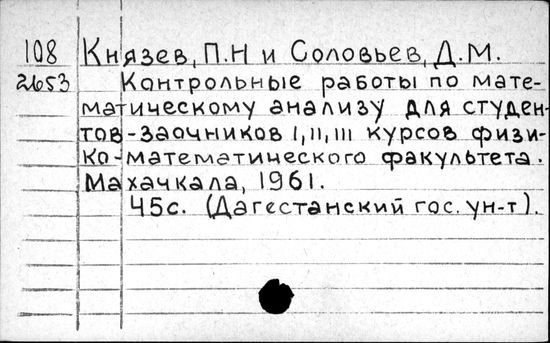 108 Князев, П.Н и Соловьев, Д.М.
2653 Контрольные работы по мате-
матическому анализу для студен-
тов-заочников I, II, III курсов физи-
ко-математического факультета.
Махачкала, 1961.
45с. (Дагестанский гос. ун-т).